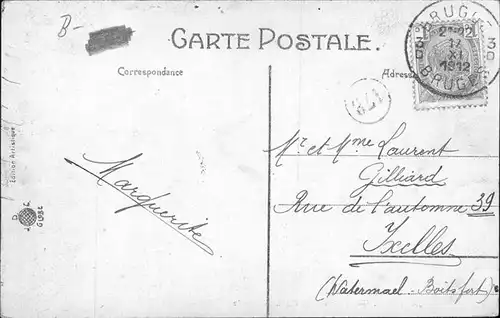 B-
CARTE POSTALE.
Correspondance
Adresse
BRUGGE
21-22
17
XI
1912
BRUGES
Mr et Mme Laurent
Gilliard
Rue de l'automne 39
Ixelles
(Watermael-Boitsfort)
Marguerite
Edition Artistique